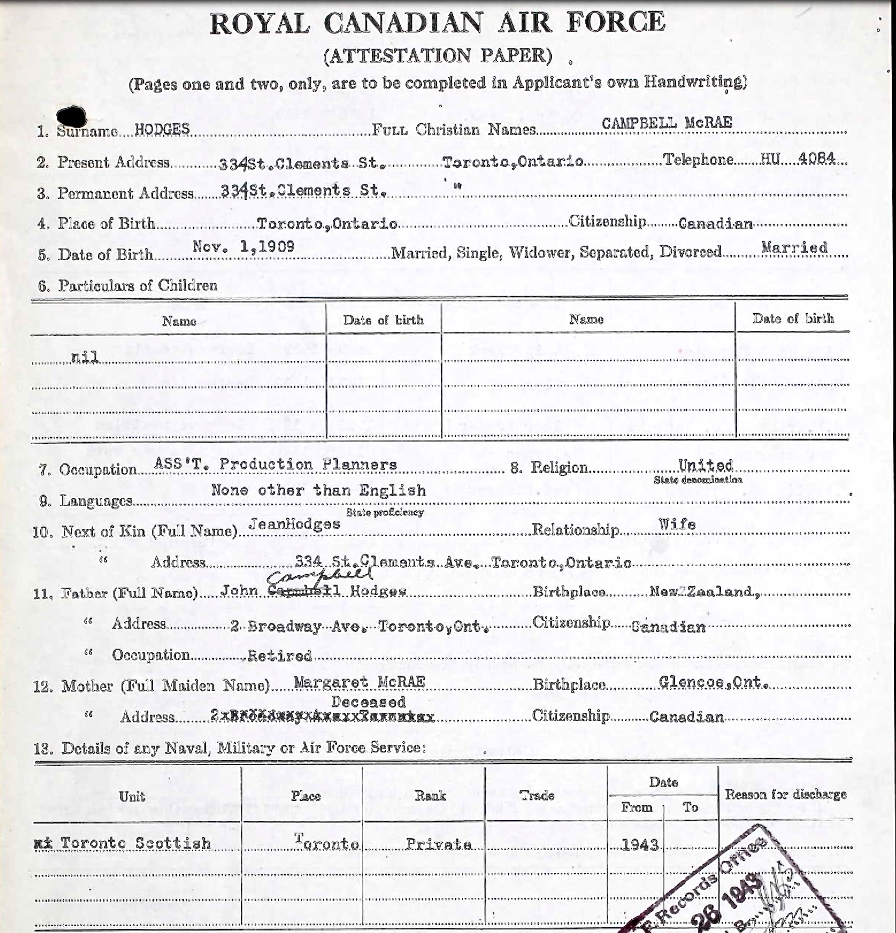 ROYAL CANADIAN AIR FORCE
(ATTESTATION PAPER)
(Pages one and two, only, are to be completed in Applicant's own Handwriting)
1. Surname HODGES FULL Christian Names CAMPBELL McRAE
2. Present Address 334St.Clements St. Toronto,Ontario Telephone HU 4084
3. Permanent Address 334St.Clements St. "
4. Place of Birth Toronto,Ontario Citizenship Canadian
5. Date of Birth Nov. 1,1909 Married, Single, Widower, Separated, Divorced Married
6. Particulars of Children
Name Date of birth Name Date of birth
nil
7. Occupation ASS'T. Production Planners 8. Religion United
State denomination
9. Languages None other than English
State proficiency
10. Next of Kin (Full Name) JeanHodges Relationship Wife
" Address 334 St.Clements Ave. Toronto,Ontario
Campbell
11. Father (Full Name) John Hodges Birthplace New Zealand,
" Address 2 Broadway Ave. Toronto,Ont. Citizenship Canadian
" Occupation Retired
12. Mother (Full Maiden Name) Margaret McRAE Birthplace Glencoe,Ont.
Deceased
" Address Citizenship Canadian
13. Details of any Naval, Military or Air Force Service:
Unit Place Rank Trade Date Reason for discharge
From To
Toronto Scottish Toronto Private 1943
Records Office
26 1943